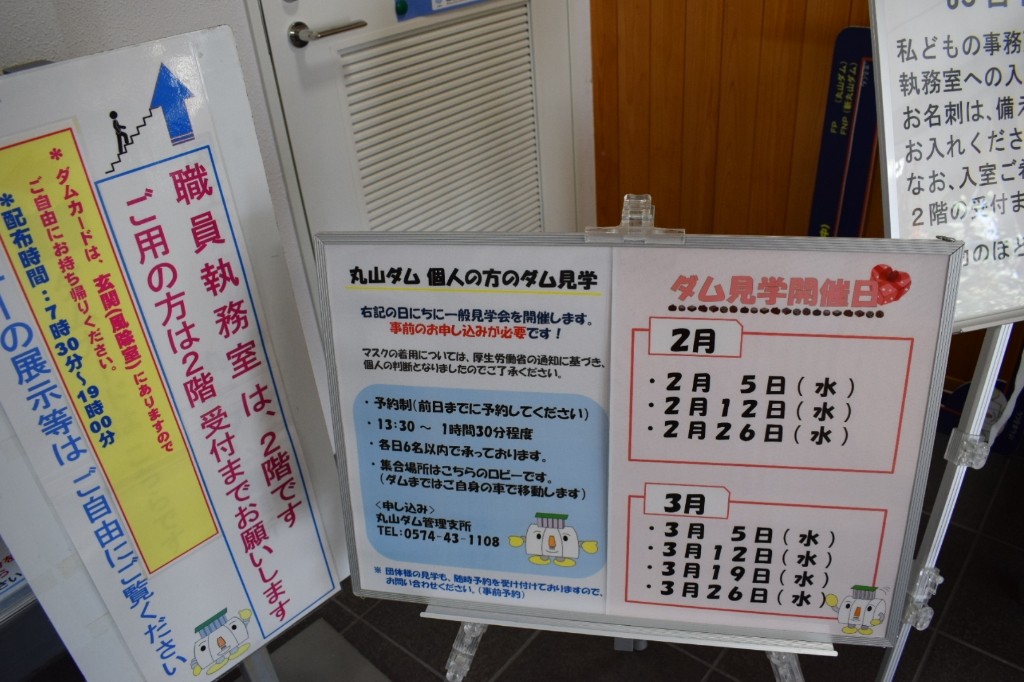 職員執務室は、2階です
ご用の方は2階受付までお願いします
＊ダムカードは、玄関(風除室)にありますので
ご自由にお持ち帰りください。
＊配布時間：7時30分～19時00分
ーの展示等はご自由にご覧ください
丸山ダム 個人の方のダム見学
右記の日にちに一般見学会を開催します。
事前のお申し込みが必要です！
マスクの着用については、厚生労働省の通知に基づき、
個人の判断となりましたのでご了承ください。
・予約制(前日までに予約してください)
・13:30 ～ 1時間30分程度
・各日6名以内で承っております。
・集合場所はこちらのロビーです。
(ダムまではご自身の車で移動します)
<申し込み>
丸山ダム管理支所
TEL:0574-43-1108
※ 団体様の見学も、随時予約を受け付けておりますので、
お問い合わせください。(事前予約)
ダム見学開催日
2月
・2月 5日(水)
・2月12日(水)
・2月26日(水)
3月
・3月 5日(水)
・3月12日(水)
・3月19日(水)
・3月26日(水)
FP (丸山ダム)
FNP (新丸山ダム)
私どもの事務
執務室への入
お名刺は、備え
お入れくださ
なお、入室ご希
2階の受付ま
のほど